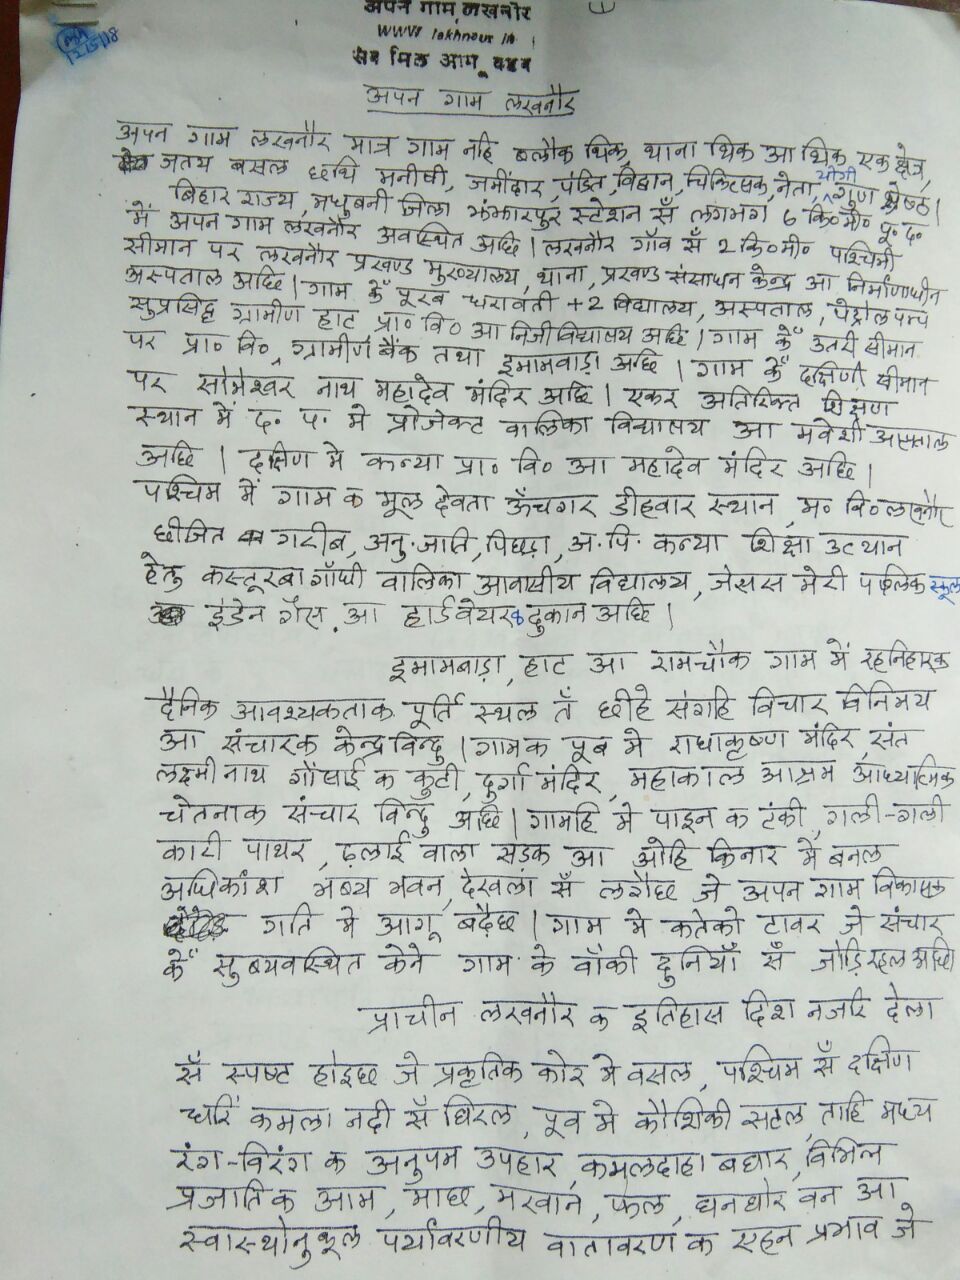 अपन गाम लखनौर
www lakhnaur in
सब मिल आगू बढब
अपन गाम लखनौर
अपन गाम लखनौर मात्र गाम नहि ब्लौक थिक, थाना थिक आ थिक एक क्षेत्र,
जतय बसल छथि मनीषी, जमींदार, पंडित, विद्वान, चिकित्सक, नेता, योगी गुण श्रेष्ठ।
बिहार राज्य, मधुबनी जिला झंझारपुर स्टेशन सँ लगभग 6 कि०मी० पू० द०
में अपन गाम लखनौर अवस्थित अछि। लखनौर गाँव सँ 2 कि०मी० पश्चिमी
सीमान पर लखनौर प्रखण्ड मुख्यालय, थाना, प्रखण्ड संसाधन केन्द्र आ निर्माणाधीन
अस्पताल अछि। गाम कें पूरब धरावती +2 विद्यालय, अस्पताल, पेट्रोल पम्प
सुप्रसिद्ध ग्रामीण हाट प्रा० वि० आ निजी विद्यालय अछि। गाम कें उतरी सीमान
पर प्रा० वि०, ग्रामीण बैंक तथा इमामवाड़ा अछि। गाम कें दक्षिणी सीमान
पर सोमेश्वर नाथ महादेव मंदिर अछि। एकर अतिरिक्त शिक्षण
स्थान में द० प० मे प्रोजेक्ट वालिका विद्यालय आ मवेशी अस्पताल
अछि। दक्षिण मे कन्या प्रा० वि० आ महादेव मंदिर अछि।
पश्चिम में गाम क मूल देवता ऊँचगर डीहवार स्थान, म० वि० लखनौर
गरीब, अनु. जाति, पिछड़ा, अ.पि. कन्या शिक्षा उत्थान
हेतु कस्तूरबा गाँधी वालिका आवासीय विद्यालय, जेसस मेरी पब्लिक स्कूल
इंडेन गैस, आ हार्डवेयर दुकान अछि।
इमामबाड़ा, हाट आ रामचौक गाम में रहनिहारक
दैनिक आवश्यकताक पूर्ति स्थल तँ छीहे संगहि विचार विनिमय
आ संचारक केन्द्र विन्दु। गामक पूब मे राधाकृष्ण मंदिर, संत
लक्ष्मी नाथ गोंसाई क कुटी, दुर्गा मंदिर, महाकाल आश्रम आध्यात्मिक
चेतनाक संचार विन्दु अछि। गामहि मे पाइन क टंकी, गली-गली
काटी पाथर, ढलाई वाला सड़क आ ओहि किनार में बनल
अधिकांश भव्य भवन, देखला सँ लगैछ जे अपन गाम विकासक
गति मे आगू बढ़ैछ। गाम मे कतेको टावर जे संचार
कें सुव्यवस्थित केने गाम के वाँकी दुनियाँ सँ जोड़ि रहल अछि।
प्राचीन लखनौर क इतिहास दिश नजरि देला
सँ स्पष्ट होइछ जे प्रकृतिक कोर मे वसल, पश्चिम सँ दक्षिण
धरि कमला नदी सँ घिरल, पूव मे कौशिकी सटल, ताहि मध्य
रंग-विरंग क अनुपम उपहार, कमलदाहा बधार, विभिन्न
प्रजातिक आम, माछ, मखान, फल, घनघोर वन आ
स्वास्थोनुकूल पर्यावरणीय वातावरण क एहन प्रभाव जे